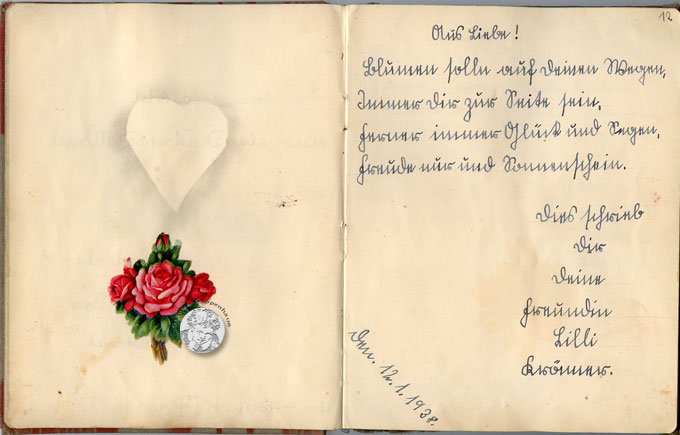 12
Aus Liebe!
Blumen solln auf deinen Wegen,
Immer dir zur Seite sein,
Ferner immer Glück und Segen,
Freude nur und Sonnenschein.
Dies schrieb
dir
deine
Freundin
Lilli
Krömer.
Den. 12.1.1938.